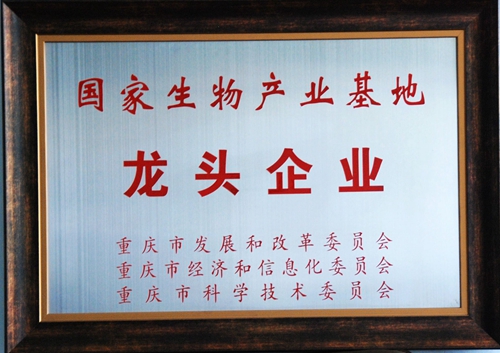 国家生物产业基地
龙头企业
重庆市发展和改革委员会
重庆市经济和信息化委员会
重庆市科学技术委员会